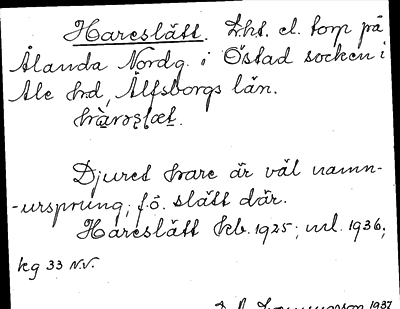 Hareslätt. Lht. el. torp på
Ålanda Nordg. i Östad socken i
Ale hd, Älfsborgs län.
Djuret hare är väl namn-
-ursprung; f.ö. slätt där.
Hareslätt kb. 1925; ml. 1936;
kg 33 N.V.
1937